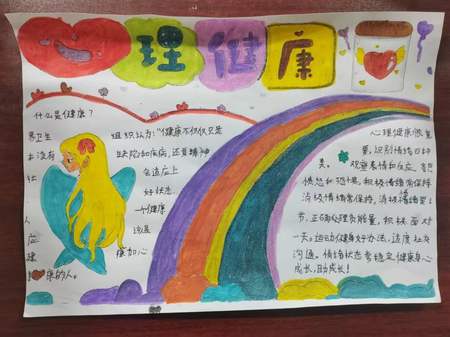 心理健康
什么是健康?
界卫生 组织认为:"健康不仅仅是
没有 生缺陷和疾病,还要精神
社 会适应上
好状态
人 一个健康
应 该是
健 康加心
康的人。
心理健康很重
量,识别情绪
表。观察表情和反应。
愤怒和恐惧,积极情绪常保持
消极情绪常保持,消极情绪要
节,正确处理负能量,积极面对
一天。运动健身好办法,适度社交
沟通。情绪状态常稳定健康身心
成长,助成长!